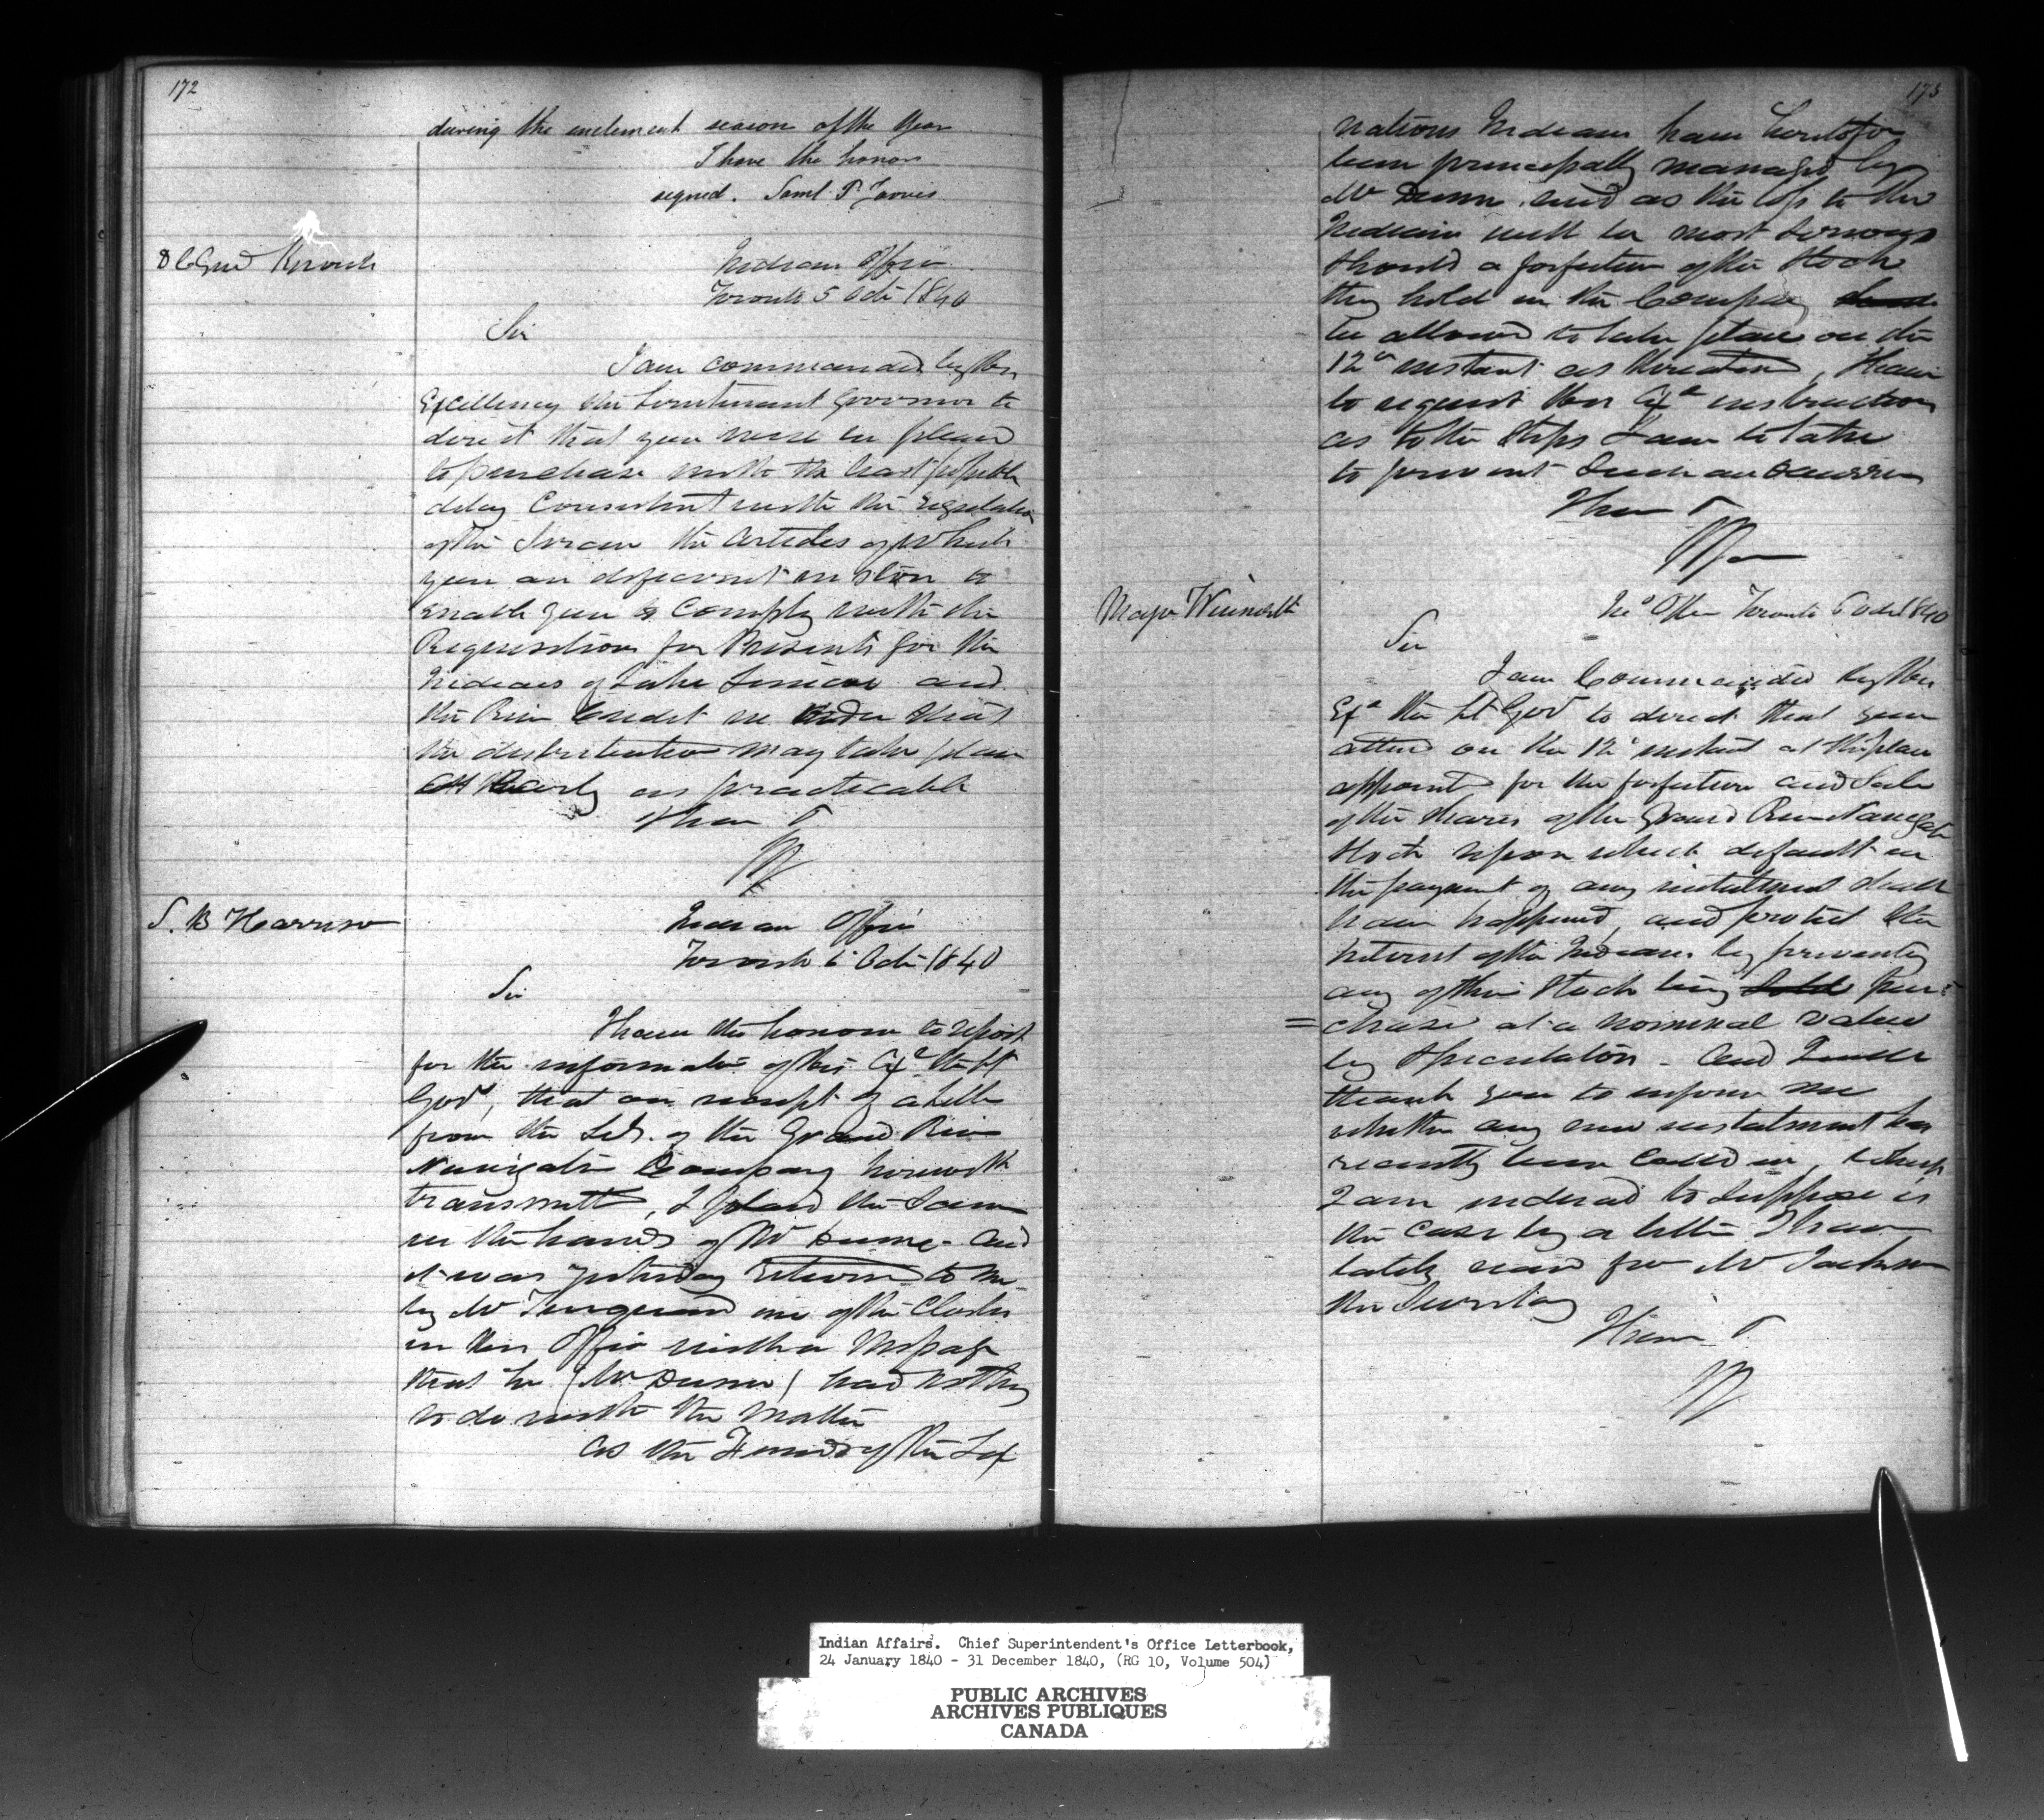 172
during the inclement season of the year
I have the honor
signed. Saml. P. Jarvis
Indian Office
Toronto 5 Octr 1840
Sir
I am commanded by His
Excellency the Lieutenant Governor to
direct that you will be pleased
to purchase with the least possible
delay Consistent with the regulation
of the Service the articles of which
you are deficient in store to
enable you to Comply with the
Requisitions for Presents for the
Indians of Lake Simcoe and
the River Credit in order that
the distribution may take place
as early as practicable
I have
S. B Harrison
Indian Office
Toronto 6 Octr 1840
Sir
I have the honour to report
for the information of His Exy the Lt
Govr, that on receipt of a letter
from the Sec. of the Grand River
Navigation Company herewith
transmitted, I placed the same
in the hands of Mr Dunn - and
it was yesterday returned to me
by Mr Turquand one of the Clerks
in his Office with a Message
that he (Mr Dunn) had nothing
to do with the matter
As the Funds of the Six
173
nations Indians have heretofore
been principally managed by
Mr Dunn, and as the loss to the
Indians will be most serious
should a forfeiture of the Stock
they hold in the Company
be allowed to take place on the
12th instant as threatened, I have
to request His Exy instructions
as to the steps I am to take
to prevent such an occurrence
I have
Major Winniett
Ind Office Toronto 6 Octr 1840
Sir
I am Commanded by His
Exy the Lt Govr to direct that you
attend on the 12th instant at the place
appointed for the forfeiture and Sale
of the Shares of the Grand River Navigation
Stock upon which default in
the payment of any instalment shall
have happened, and protect the
interest of the Indians by preventing
any of their Stock being sold pur=
=chased at a nominal value
by speculators - and I will
thank you to inform me
whether any new instalment has
recently been called in, which
I am induced to suppose is
the case by a letter I have
lately recd from Mr Jackson
the Secretary
I have
Indian Affairs. Chief Superintendent's Office Letterbook,
24 January 1840 - 31 December 1840, (RG 10, Volume 504)
PUBLIC ARCHIVES
ARCHIVES PUBLIQUES
CANADA